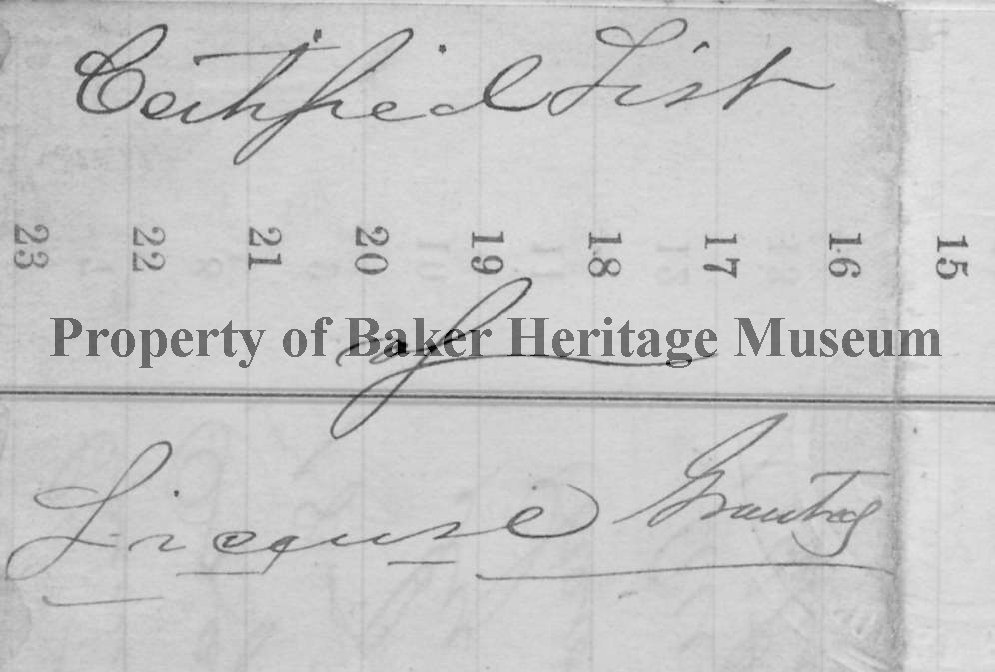 Certified List
23 22 21 20 19 18 17 16 15
of
Property of Baker Heritage Museum
License